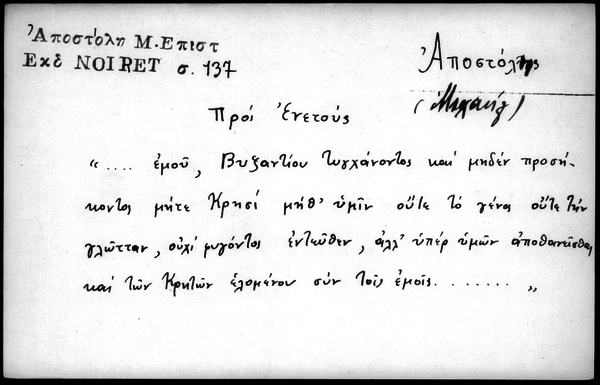 Ἀποστόλη Μ. Επιστ
Εκδ NOIRET σ. 137
Ἀποστόλης
(Μιχαήλ)
Πρός Ἐνετούς
«.... ἐμοῦ, Βυζαντίου τυγχάνοντος καί μηδέν προσή-
κοντος μήτε Κρησί μήθ' ὑμῖν οὔτε τό γένος οὔτε τήν
γλῶτταν, οὐχί φυγόντος ἐντεῦθεν, ἀλλ' ὑπέρ ὑμῶν ἀποθανεῖσθαι
καί τῶν Κρητῶν ἑλομένου σύν τοῖς ἐμοῖς........»